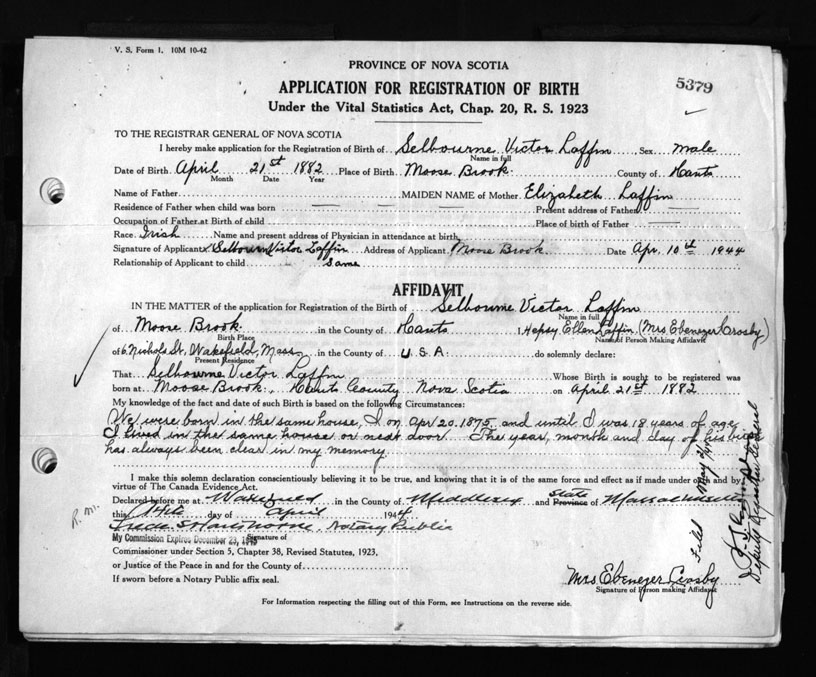 V. S. Form 1. 10M 10-42
PROVINCE OF NOVA SCOTIA
5379
APPLICATION FOR REGISTRATION OF BIRTH
Under the Vital Statistics Act, Chap. 20, R. S. 1923
TO THE REGISTRAR GENERAL OF NOVA SCOTIA
I hereby make application for the Registration of Birth of Selbourne Victor Laffin, Sex male
Name in full
Date of Birth April 21st 1882 Place of Birth Moose Brook County of Hants
Month Date Year
Name of Father MAIDEN NAME of Mother Elizabeth Laffin
Residence of Father when child was born Present address of Father
Occupation of Father at Birth of child Place of birth of Father
Race Irish Name and present address of Physician in attendance at birth
Signature of Applicant Selbourn Victor Laffin Address of Applicant Moose Brook Date Apr. 10th 1944
Relationship of Applicant to child Same
AFFIDAVIT
IN THE MATTER of the application for Registration of the Birth of Selbourne Victor Laffin
Name in full
of Moose Brook in the County of Hants I, Hepsy Ellen Laffin (Mrs Ebenezer Crosby)
Birth Place Name of Person Making Affidavit
of 6 Nichols St. Wakefield, Mass in the County of U.S.A do solemnly declare:
Present Residence
That Selbourne Victor Laffin Whose Birth is sought to be registered was
born at Moose Brook, Hants County Nova Scotia on April 21st 1882
My knowledge of the fact and date of such Birth is based on the following Circumstances:
We were born in the same house, I on Apr 20. 1875, and until I was 18 years of age
I lived in the same house or next door. The year, month and day of his birth
has always been clear in my memory.
I make this solemn declaration conscientiously believing it to be true, and knowing that it is of the same force and effect as if made under oath and by
virtue of The Canada Evidence Act.
Declared before me at Wakefield in the County of Middlesex and State Province of Massachusetts
this day of April 1944
Notary Public
My Commission Expires December 23, 1949
Signature of
Commissioner under Section 5, Chapter 38, Revised Statutes, 1923,
or Justice of the Peace in and for the County of
If sworn before a Notary Public affix seal.
Mrs Ebenezer Crosby
Signature of Person making Affidavit
For Information respecting the filling out of this Form, see Instructions on the reverse side.
R. M.
Filed May
Deputy Registrar General